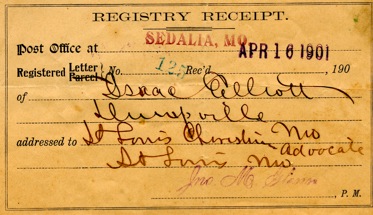 REGISTRY RECEIPT.
Post Office at SEDALIA, MO. APR 16 1901
Registered Letter Parcel No. 125 Rec'd, 190
of Isaac Elliott
addressed to St Louis Christian Advocate
St Louis Mo
Jno. M.
, P. M.